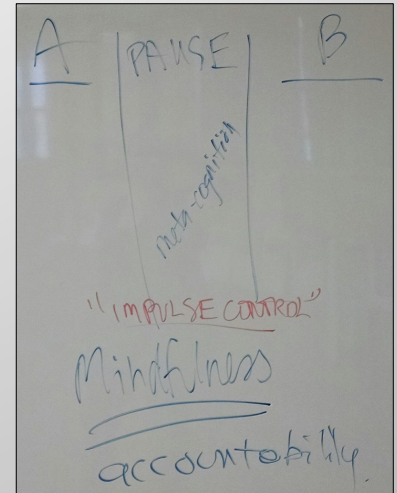 A PAUSE B
meta-cognition
"IMPULSE CONTROL"
Mindfulness
accountability.